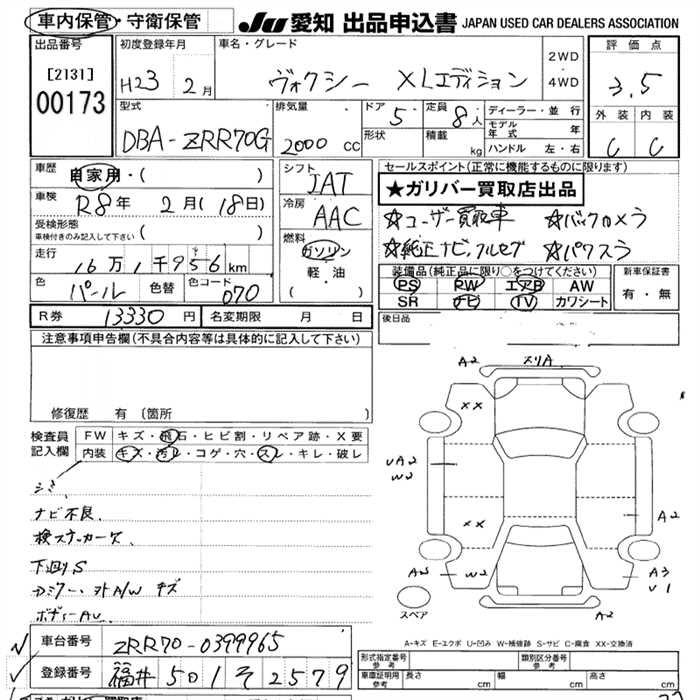 車内保管・守衛保管
JU 愛知 出品申込書 JAPAN USED CAR DEALERS ASSOCIATION
出品番号
[2131]
00173
初度登録年月
H23 2月
車名・グレード
ヴォクシー XLエディション
2WD
4WD
評価点
3.5
型式
DBA-ZRR70G
排気量
2000 CC
ドア
5
定員
8人
形状
積載
kg
ディーラー・並行
モデル年式 年
ハンドル 左・右
外装 内装
C C
車歴
自家用・( )
車検
R8年 2月(18日)
受検形態
車検付きのみ記入して下さい ( )
走行
16万1千956km
色
パール
色替
色コード
070
シフト
IAT
冷房
AAC
燃料
ガソリン
軽・油
( )
セールスポイント(正常に機能するものに限ります)
★ガリバー買取店出品
☆ユーザー買取車 ☆バックカメラ
☆純正ナビ,フルセグ ☆パワスラ
装備品(純正品に限り○をつけてください)
PS PW エアB AW
SR ナビ TV カワシート
新車保証書
有・無
R券 13330円
名変期限 月 日
後日品
注意事項申告欄(不具合内容等は具体的に記入して下さい)
修復歴 有 (箇所 )
検査員記入欄
FW キズ・飛石・ヒビ割・リペア跡・X要
内装 キズ・汚レ・コゲ・穴・スレ・キレ・破レ
シミ
ナビ不良.
検ステッカーズ.
下廻りS
ボディーAU.
A2 スリA
XX
UA2
W2
XX
A2
A2 W2
A3
U1
スペア
A-キズ E-エクボ U-凹み W-補修跡 S-サビ C-腐食 XX-交換済
車台番号 ZRR70-0399965
登録番号 福井 501 そ 2579
形式指定番号
参考
類別区分番号
参考
車庫証明用
参考
長さ cm
幅 cm
高さ cm